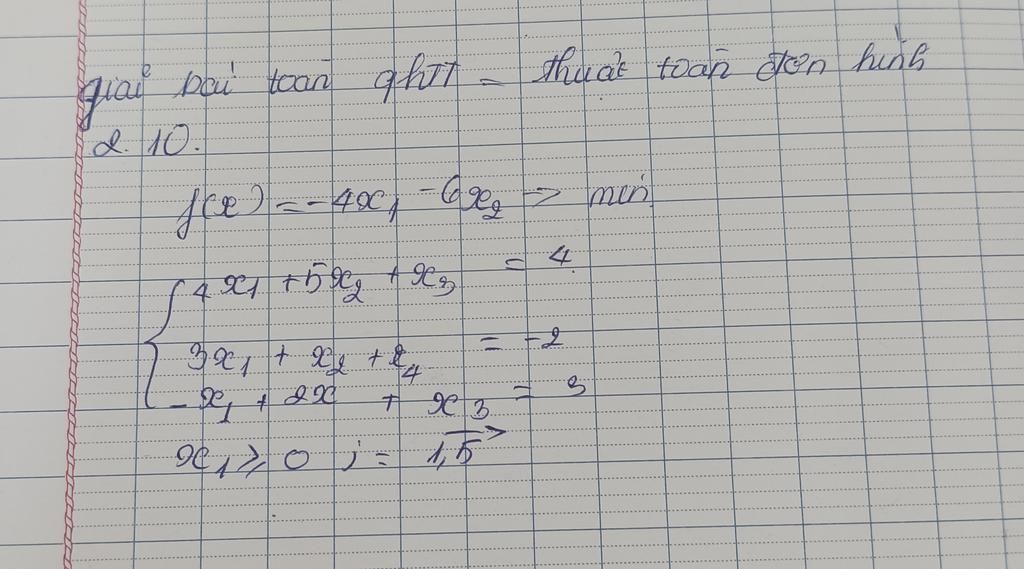 giải bài toán qhTT = thuật toán đơn hình
2.10.
f(x) = -4x₁ -6x₂ -> min
4x₁ +5x₂ + x₃ = 4
3x₁ + x₂ + x₄ = -2
-x₁ + 2x + x₃ = 3
x₁ ≥ 0 j = 1,5